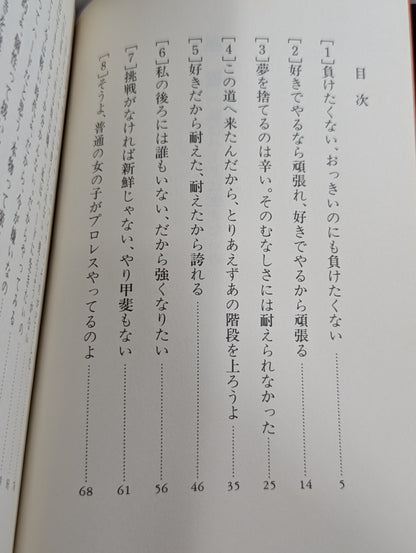 目次
[1]負けたくない、おっきいのにも負けたくない……5
[2]好きでやるなら頑張れ、好きでやるから頑張る……14
[3]夢を捨てるのは辛い。そのむなしさには耐えられなかった……25
[4]この道へ来たんだから、とりあえずあの階段を上ろうよ……35
[5]好きだから耐えた、耐えたから誇れる……46
[6]私の後ろには誰もいない、だから強くなりたい……56
[7]挑戦がなければ新鮮じゃない、やり甲斐もない……61
[8]そうよ、普通の女の子がプロレスやってるのよ……68